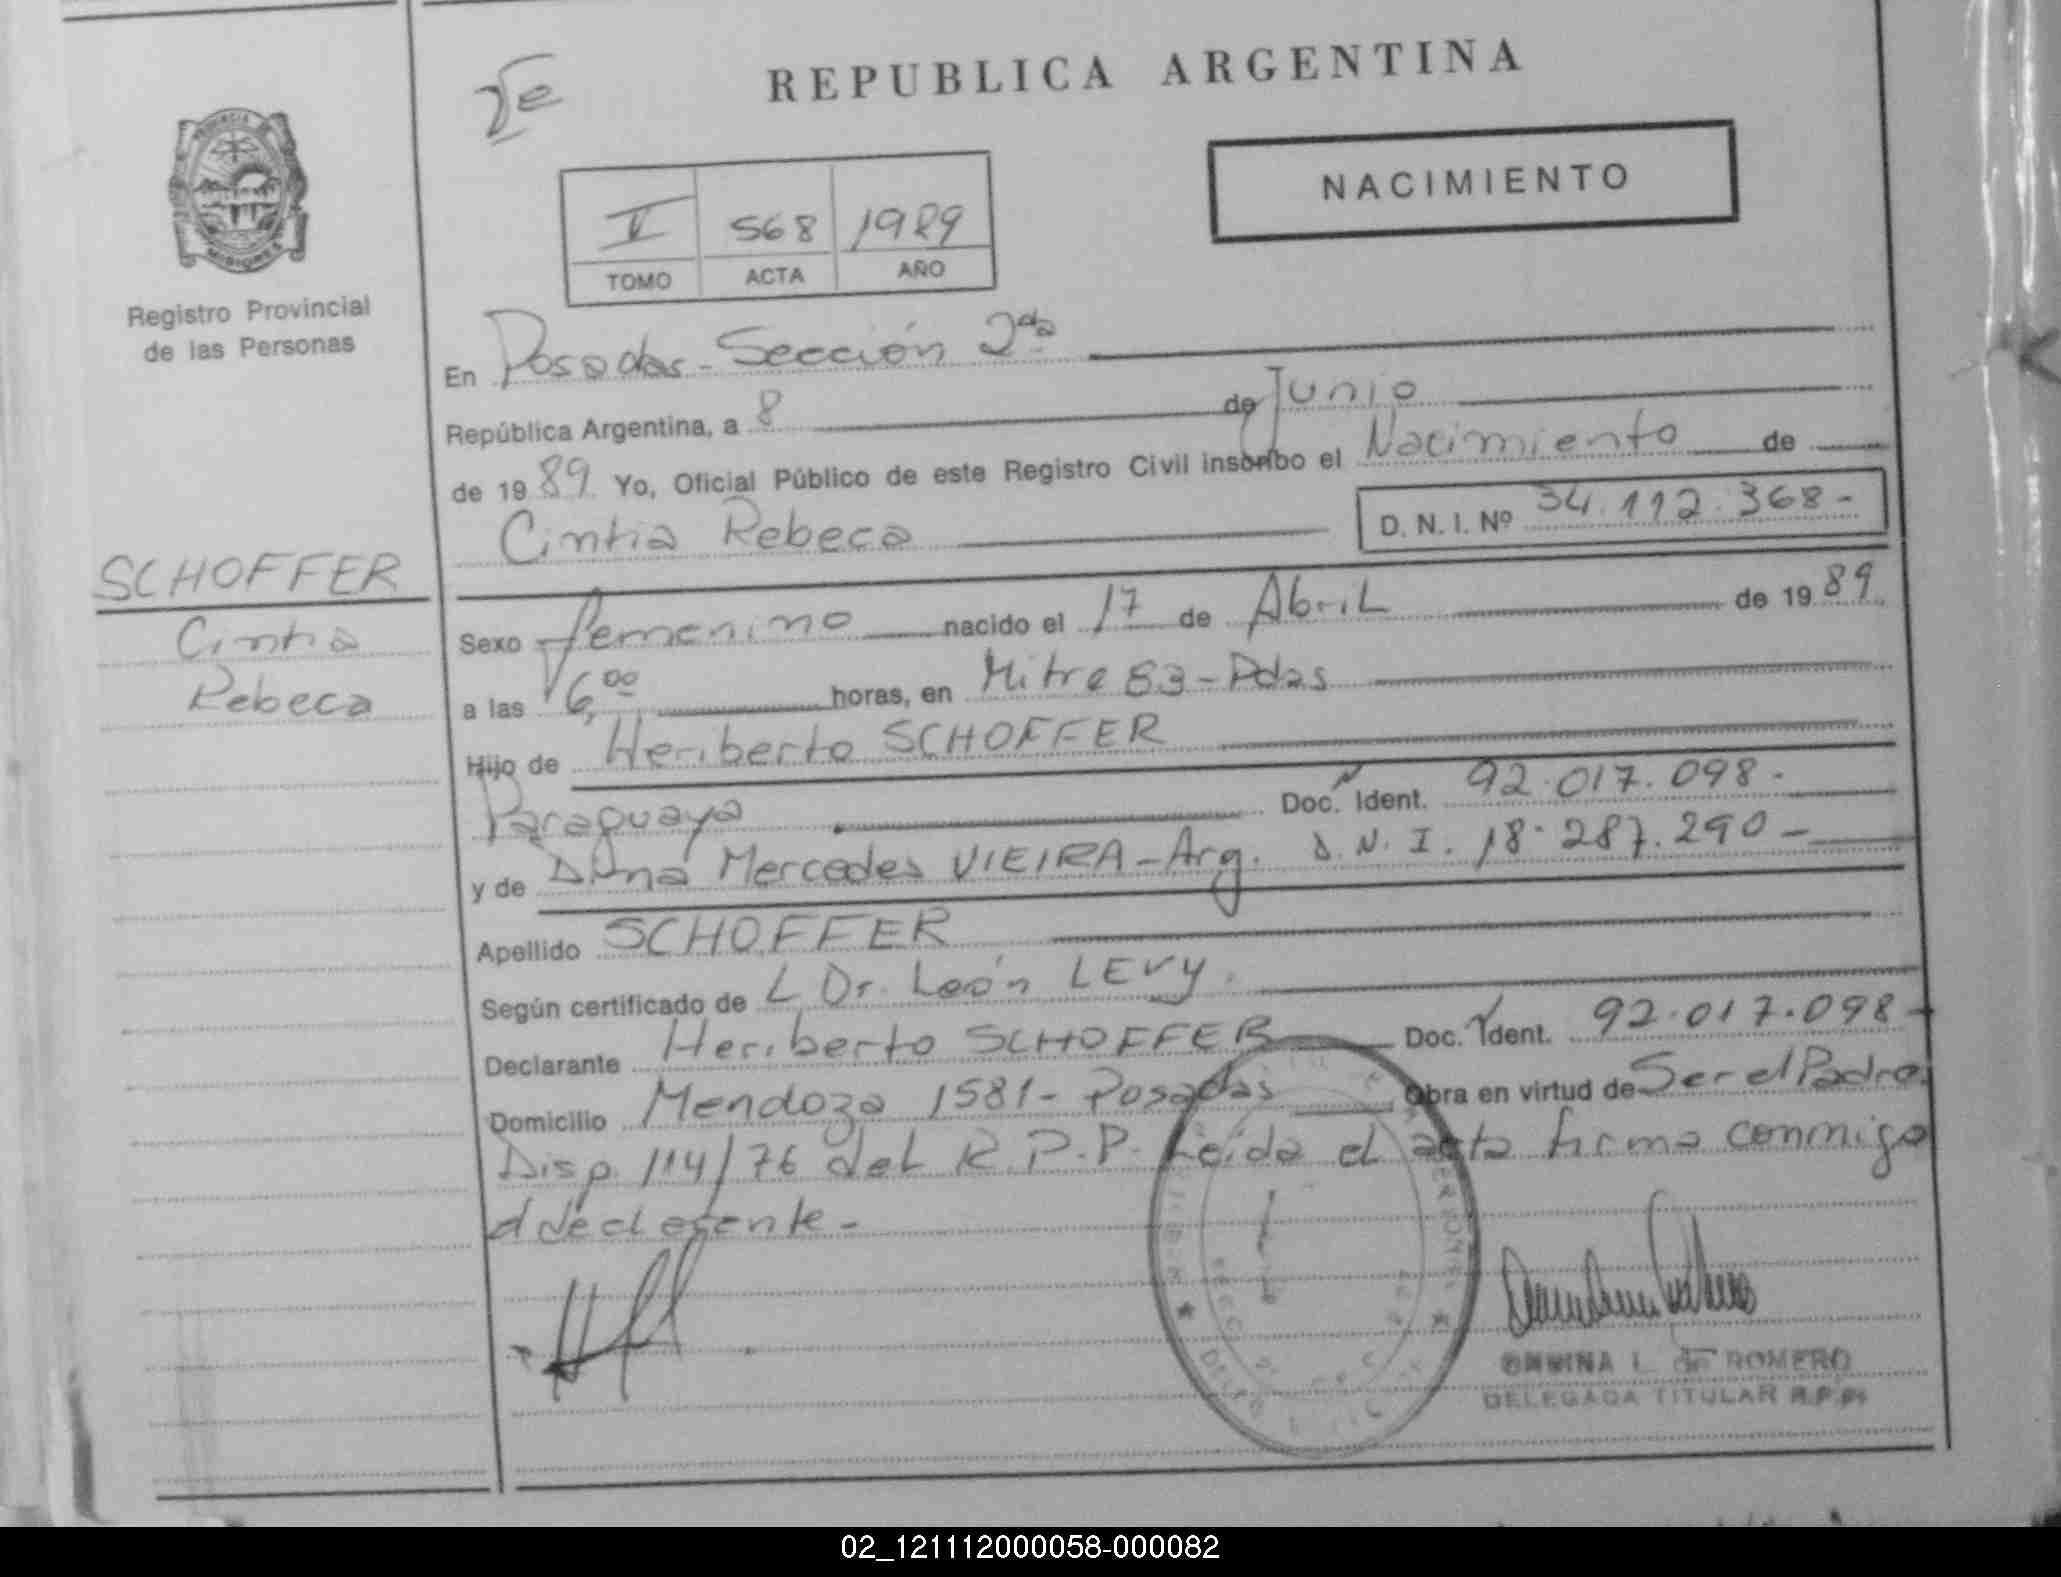 REPUBLICA ARGENTINA
NACIMIENTO
V 568 1989
TOMO ACTA AÑO
Registro Provincial
de las Personas
En Posadas - Sección 2da
República Argentina, a 8 de Junio
de 1989 Yo, Oficial Público de este Registro Civil inscribo el Nacimiento de
Cintia Rebeca D. N. I. Nº 34.112.368-
SCHOFFER
Cintia
Rebeca
Sexo femenino nacido el 17 de Abril de 1989
a las 6,00 horas, en Mitre 83 - Pdas
Hijo de Heriberto SCHOFFER
Paraguaya Doc. Ident. 92.017.098.
y de Mercedes VIEIRA - Arg. D.N.I. 18.287.290-
Apellido SCHOFFER
Según certificado de L Dr. León LEVY.
Declarante Heriberto SCHOFFER Doc. Ident. 92.017.098-
Domicilio Mendoza 1581 - Posadas Obra en virtud de Ser el Padre.
Disp. 114/76 del R.P.P. Leída el acta firma conmigo
el declarante-
L. de ROMERO
DELEGADA TITULAR R.P.P.
02_121112000058-000082